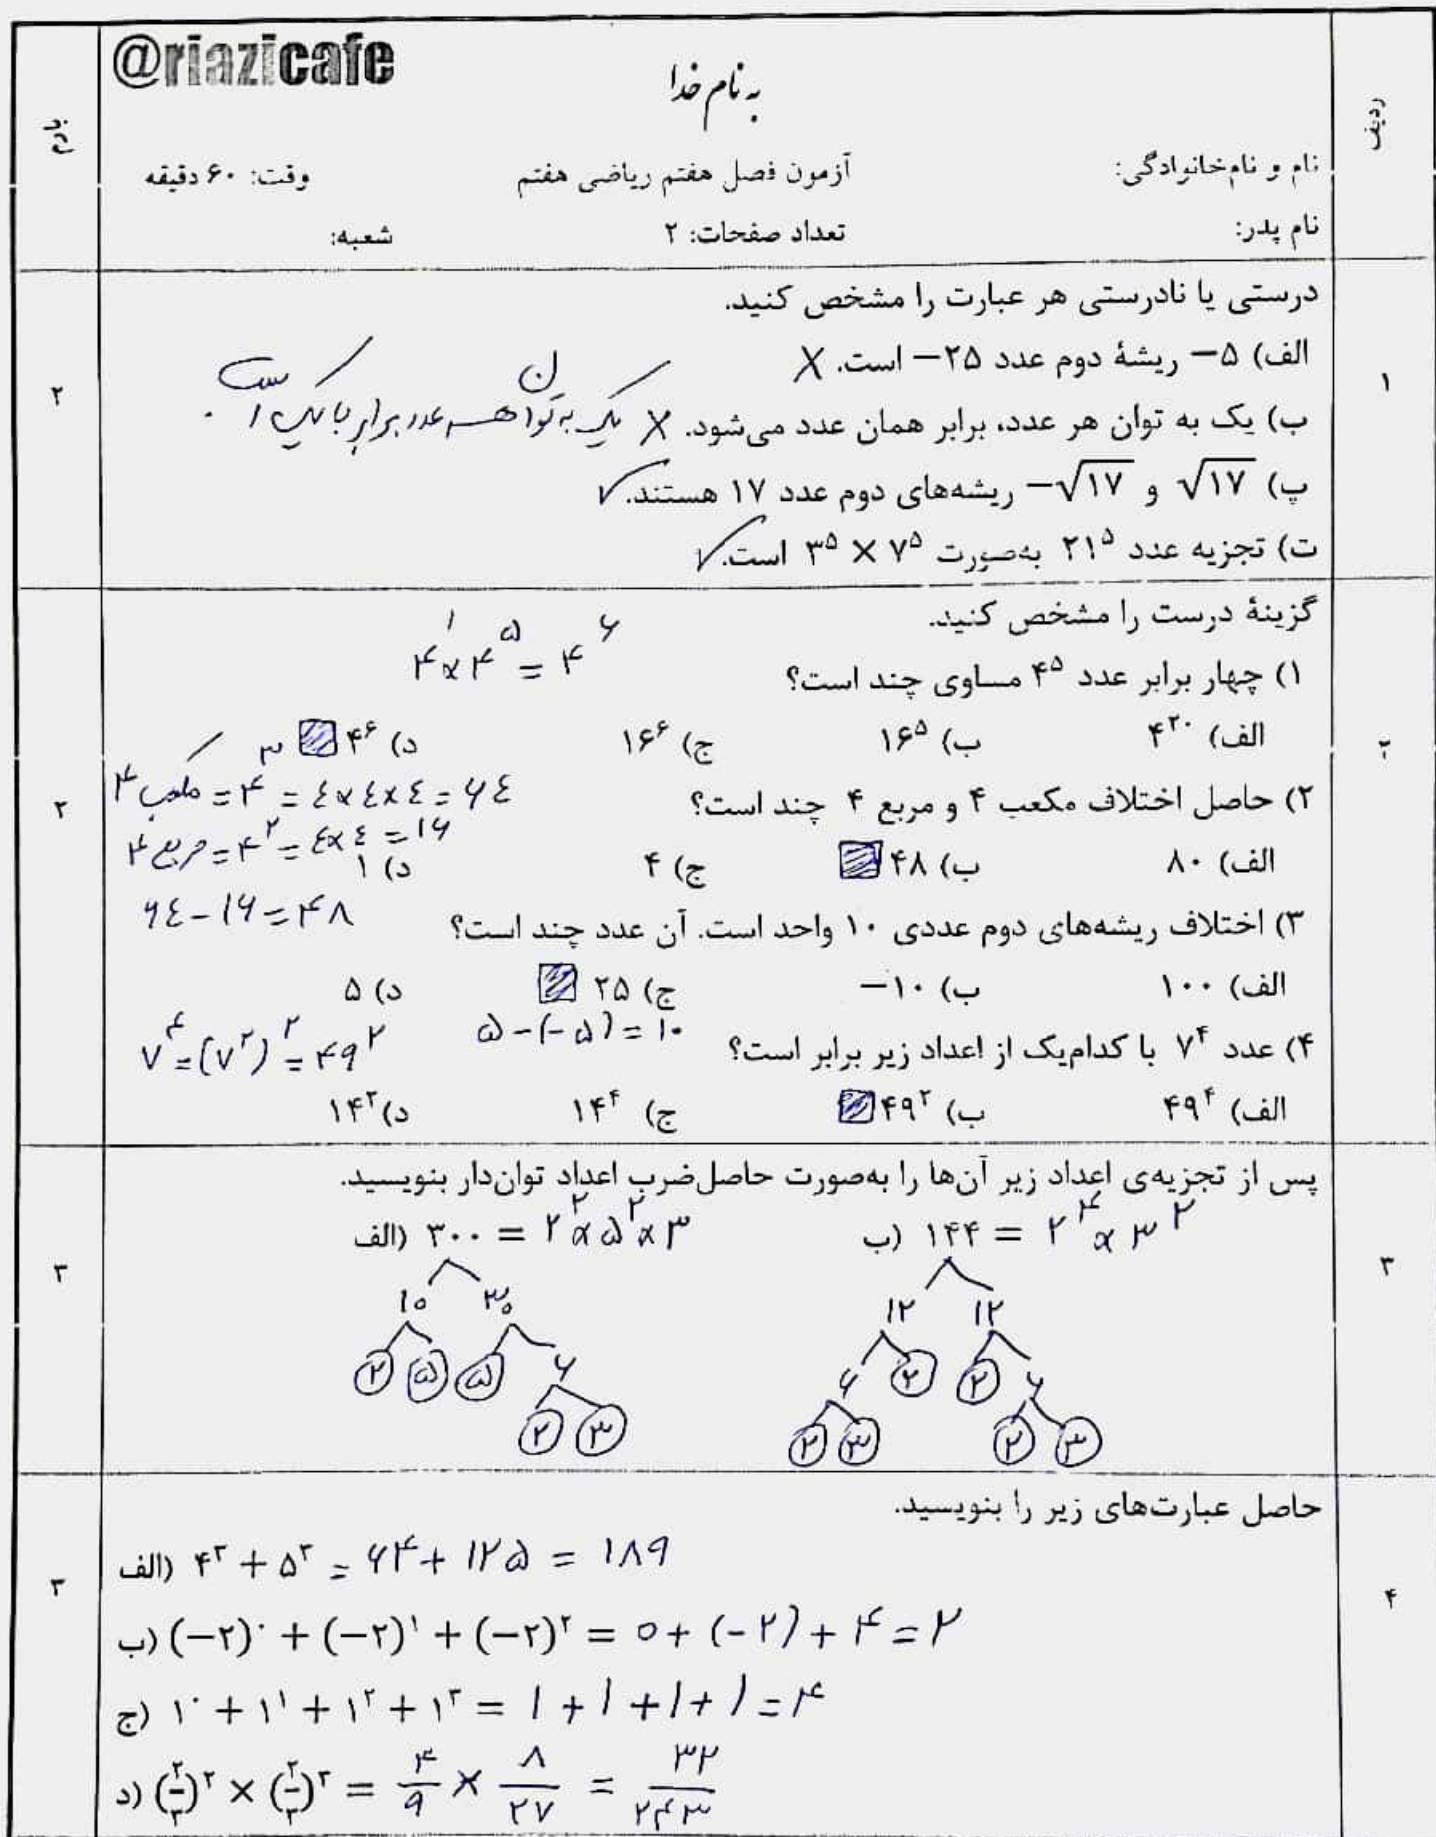 @riazicafe
به نام خدا
ردیف
بارم
نام و نام‌خانوادگی: آزمون فصل هفتم ریاضی هفتم وقت: ۶۰ دقیقه
نام پدر: تعداد صفحات: ۲ شعبه:
درستی یا نادرستی هر عبارت را مشخص کنید.
الف) ۵− ریشهٔ دوم عدد ۲۵− است. X
۱
۲
ب) یک به توان هر عدد، برابر همان عدد می‌شود. X یک به توان هر عدد برابر با یک است.
پ) √۱۷ و −√۱۷ ریشه‌های دوم عدد ۱۷ هستند. ✓
ت) تجزیه عدد ۲۱⁵ به‌صورت ۳⁵ × ۷⁵ است. ✓
گزینهٔ درست را مشخص کنید.
۴¹ × ۴⁵ = ۴⁶
۱) چهار برابر عدد ۴⁵ مساوی چند است؟
الف) ۴²⁰ ب) ۱۶⁵ ج) ۱۶⁶ د) ۴⁶
۲
۲
مکعب ۴ = ۴³ = ٤×٤×٤ = ۶٤
۲) حاصل اختلاف مکعب ۴ و مربع ۴ چند است؟
مربع ۴ = ۴² = ٤×٤ = ۱۶
الف) ۸۰ ب) ۴۸ ج) ۴ د) ۱
۶٤ − ۱۶ = ۴۸
۳) اختلاف ریشه‌های دوم عددی ۱۰ واحد است. آن عدد چند است؟
الف) ۱۰۰ ب) ۱۰− ج) ۲۵ د) ۵
۵ − (−۵) = ۱۰
۷⁴ = (۷²)² = ۴۹²
۴) عدد ۷⁴ با کدام‌یک از اعداد زیر برابر است؟
الف) ۴۹⁴ ب) ۴۹² ج) ۱۴⁴ د) ۱۴²
پس از تجزیه‌ی اعداد زیر آن‌ها را به‌صورت حاصل‌ضرب اعداد توان‌دار بنویسید.
الف) ۳۰۰ = ۲² × ۵² × ۳ ب) ۱۴۴ = ۲⁴ × ۳²
۳
۳
۱۰ ۳۰ ۱۲ ۱۲
۲ ۵ ۵ ۶ ۶ ۲ ۲ ۶
۲ ۳ ۲ ۳ ۲ ۳
حاصل عبارت‌های زیر را بنویسید.
الف) ۴³ + ۵³ = ۶۴ + ۱۲۵ = ۱۸۹
۴
۳
ب) (−۲)⁰ + (−۲)¹ + (−۲)² = ۰ + (−۲) + ۴ = ۲
ج) ۱⁰ + ۱¹ + ۱² + ۱³ = ۱ + ۱ + ۱ + ۱ = ۴
د) (۲/۳)² × (۲/۳)³ = ۴/۹ × ۸/۲۷ = ۳۲/۲۴۳